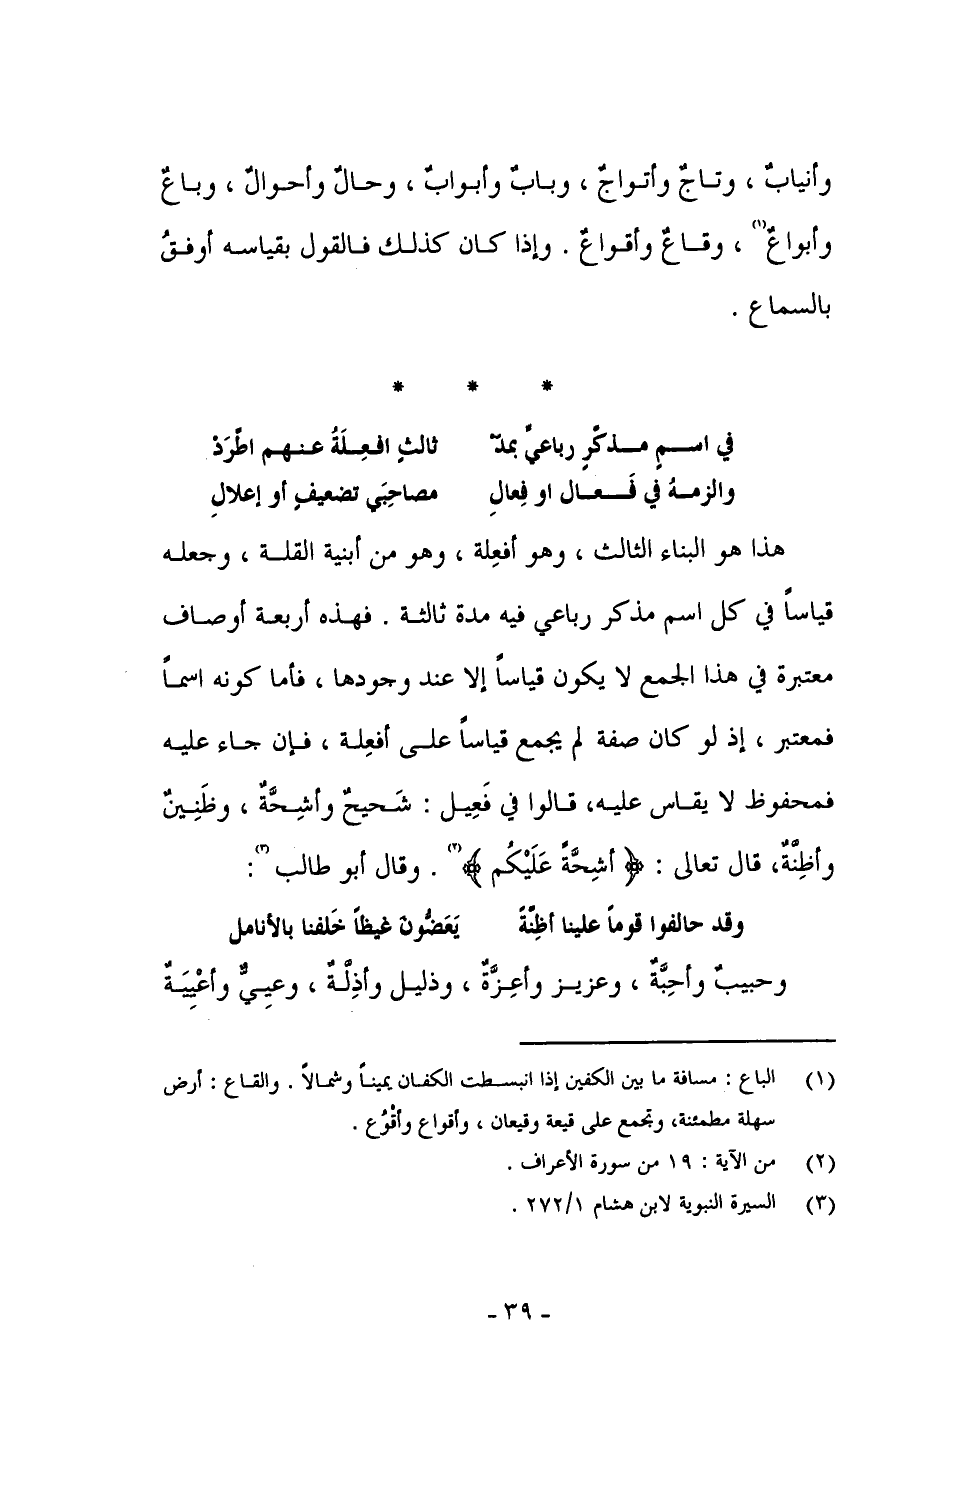 وأنيابٌ ، وتـاجٌ وأتـواجٌ ، وبـابٌ وأبـوابٌ ، وحـالٌ وأحـوالٌ ، وبـاعٌ
وأبواعٌ(١) ، وقـاعٌ وأقـواعٌ . وإذا كـان كذلـك فـالقول بقياسـه أوفـقُ
بالسماع .
* * *
في اسـمٍ مـذكّرٍ رباعيٍّ بمدّ ثالثٍ افعِـلَةُ عـنـهـم اطّرَدْ
والزمـهُ في فَـعـال او فِعالِ مصاحِبَي تضعيفٍ أو إعلالِ
هذا هو البناء الثالث ، وهو أفعِلة ، وهو من أبنية القلـة ، وجعلـه
قياساً في كل اسم مذكر رباعي فيه مدة ثالثـة . فهـذه أربعـة أوصـاف
معتبرة في هذا الجمع لا يكون قياساً إلا عند وجودها ، فأما كونه اسمـاً
فمعتبر ، إذ لو كان صفة لم يجمع قياساً علـى أفعِلـة ، فـإن جـاء عليـه
فمحفوظ لا يقـاس عليـه، قـالوا في فَعِيـل : شَـحيحٌ وأشِـحَّةٌ ، وظَنِـينٌ
وأظِنَّةٌ، قال تعالى : ﴿ أشِحَّةً عَلَيْكُم ﴾(٢) . وقال أبو طالب(٣) :
وقد حالفوا قوماً علينا أظِنّةً يَعَضُّونَ غيظاً خَلفنا بالأنامل
وحبيبٌ وأحِبَّةٌ ، وعزيـز وأعِـزَّةٌ ، وذليـل وأذِلَّـةٌ ، وعيِـيٌّ وأعْيِيَـةٌ
(١) الباع : مسافة ما بين الكفين إذا انبسـطت الكفـان يمينـاً وشمـالاً . والقـاع : أرض
سهلة مطمئنة، وتجمع على قيعة وقيعان ، وأقواع وأقْوُع .
(٢) من الآية : ١٩ من سورة الأعراف .
(٣) السيرة النبوية لابن هشام ٢٧٢/١ .
- ٣٩ -